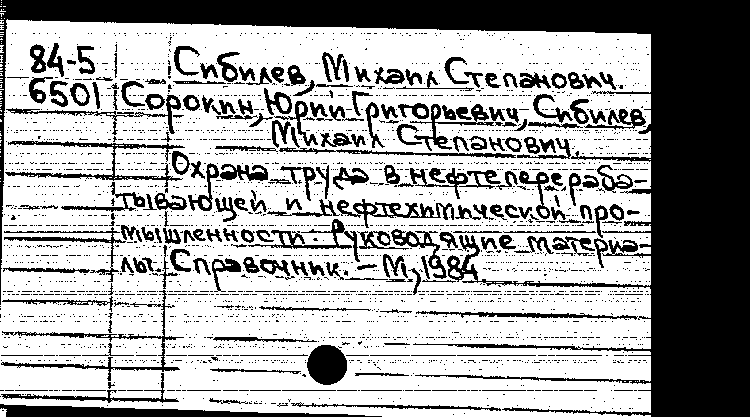 84-5 Сибилев, Михаил Степанович.
6501 Сорокин, Юрий Григорьевич, Сибилев,
Михаил Степанович.
Охрана труда в нефтеперераба-
тывающей и нефтехимической про-
мышленности: Руководящие материа-
лы. Справочник. – М, 1984